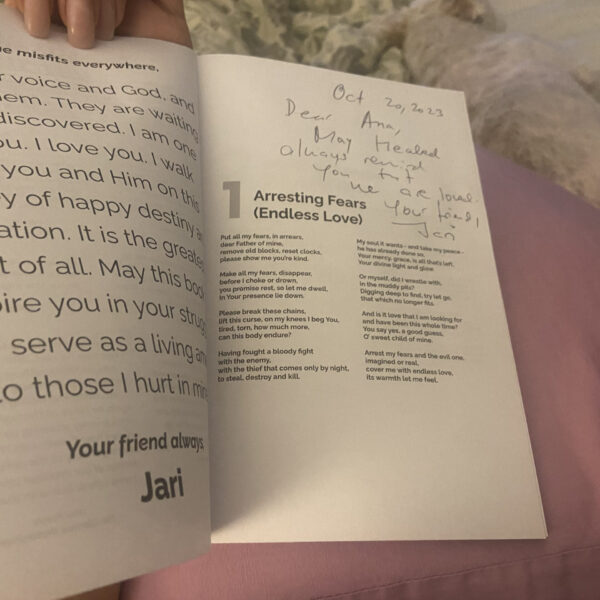 e misfits everywhere.
r voice and God, and
em. They are waiting
discovered. I am one
ou. I love you. I walk
you and Him on this
y of happy destiny
ation. It is the
t of all. May this
ire you in your
serve as a living
o those I hurt in
Your friend always,
Jari
Oct 20, 2023
Dear Ana,
May Healed
always remind
you tht
you are loved.
Your friend,
Jari
1
Arresting Fears
(Endless Love)
Put all my fears, in arrears,
dear Father of mine,
remove old blocks, reset clocks,
please show me you're kind.
Make all my fears, disappear,
before I choke or drown,
you promise rest, so let me dwell,
in Your presence lie down.
Please break these chains,
lift this curse, on my knees I beg You,
tired, torn, how much more,
can this body endure?
Having fought a bloody fight
with the enemy,
with the thief that comes only by night,
to steal, destroy and kill.
My soul it wants - and take my peace -
he has already done so.
Your mercy, grace, is all that's left,
Your divine light and glow.
Or myself, did I wrestle with,
in the muddy pits?
Digging deep to find, try let go,
that which no longer fits.
And is it love that I am looking for
and have been this whole time?
You say yes, a good guess,
O' sweet child of mine.
Arrest my fears and the evil one,
imagined or real,
cover me with endless love,
its warmth let me feel.